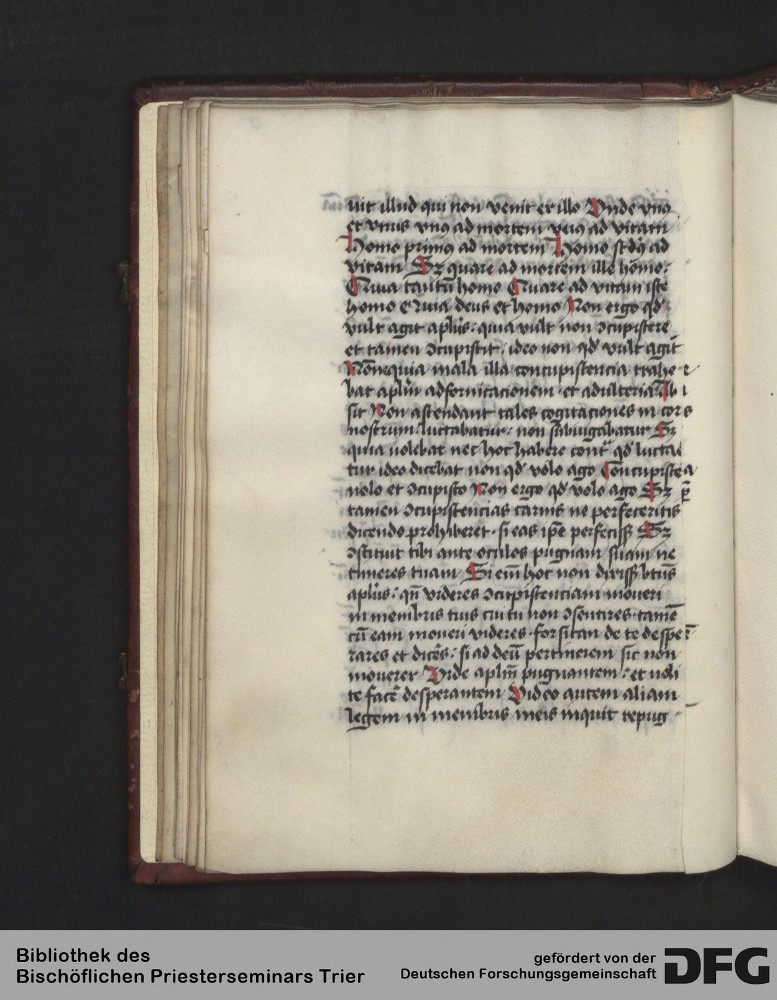 uit illud qui non venit ex illo Unde vnꝯ
et vnus vnꝯ ad mortem vnꝯ ad vitam
Homo primꝯ ad mortem Homo scdꝯ ad
vitam Sꝫ quare ad mortem ille homo·
Quia tantū homo Quare ad vitam iste
homo Quia deus et homo Non ergo qd̕
vult agit apl̄us· quia vult non ꝯcupistere
et tamen ꝯcupistit· ideo non qd̕ vult agit
Nonne quia mala illa concupistencia trahe
bat apl̄m ad fornicacionem et adulteria Ab
sit Non astendant tales cogitaciones in cor
nostrum· luctabatur· non subiugabatur Sꝫ
quia uolebat nec hoc habere cont̄ qd̕ lucta
tur ideo dicebat non qd̕ volo ago Concupiste
nolo et ꝯcupisto Non ergo qd̕ volo ago Sꝫ
tamen ꝯcupistencias carnis ne perfeceritis
dicendo prohiberet· si eas ip̄e perfeciss̄ Sꝫ
ꝯstituit tibi ante oculos pugnam suam ne
timeres tuam Si em̄ hoc non dixiss̄ btūs
apl̄us· qn̄ videres ꝯcupistenciam moueri
in membris tuis cui tu non ꝯsentires· tamē
cū eam moueri videres· forsitan de te despe
rares et dices̄· si ad deū pertinerem sic non
mouerer Vide apl̄m pugnantem· et noli
te facē desperantem Video autem aliam
legem in membris meis inquit repug
Bibliothek des
Bischöflichen Priesterseminars Trier
gefördert von der
Deutschen Forschungsgemeinschaft
DFG